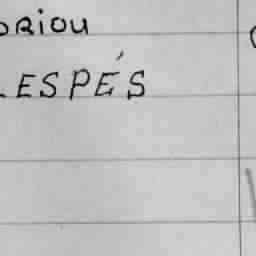 ORIOU
LESPÉS